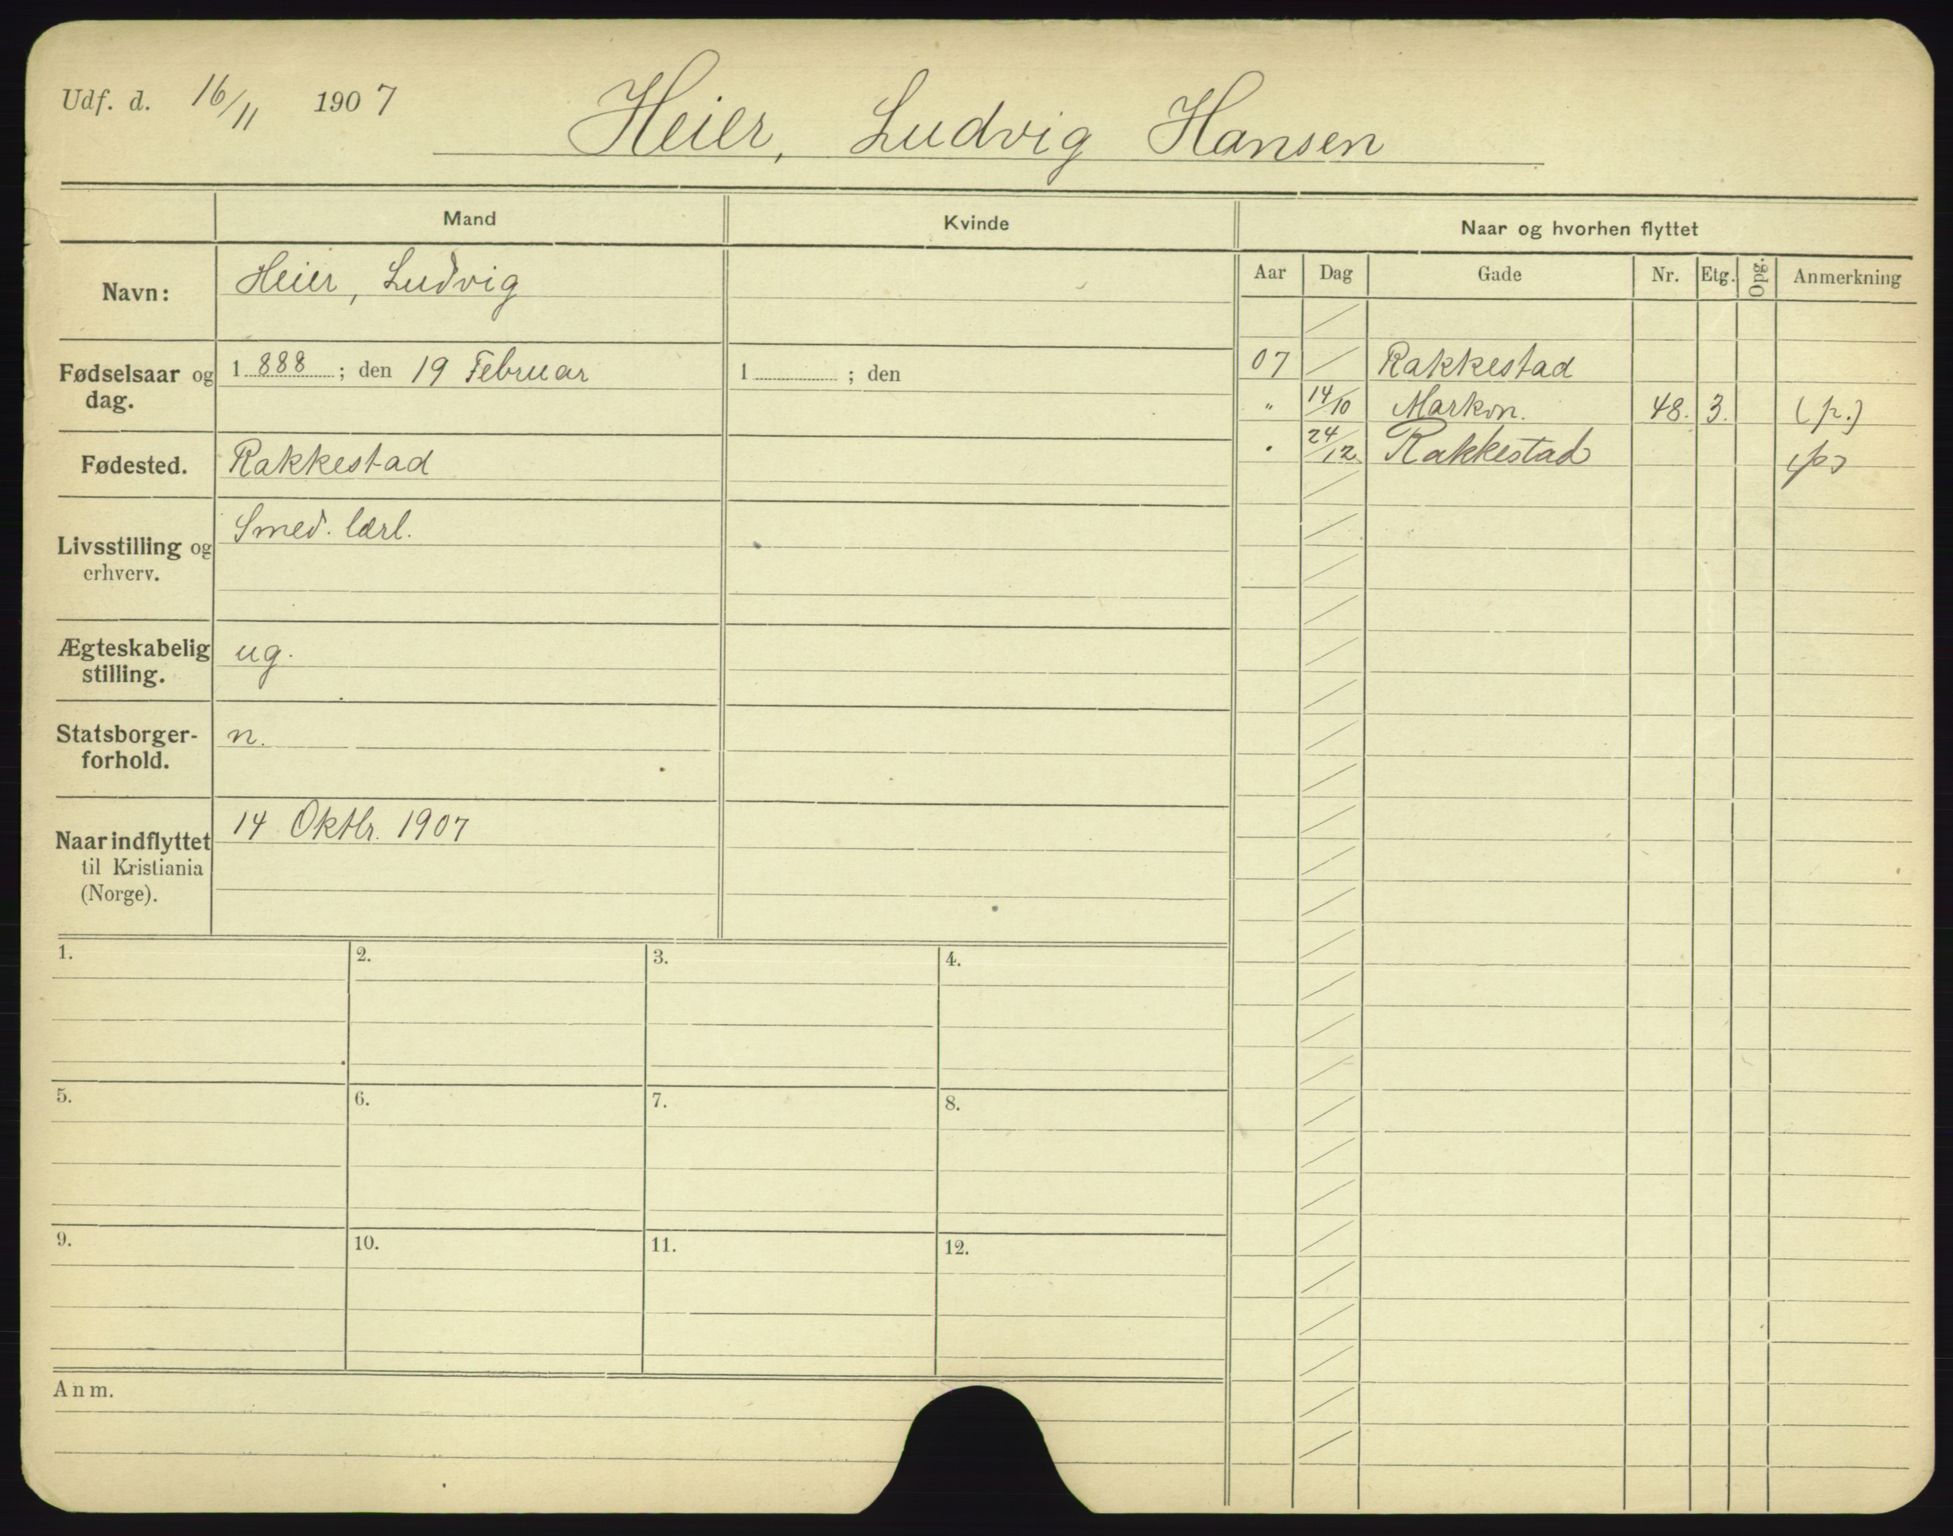 Udf. d. 16/11 1907
Heier, Ludvig Hansen
Mand
Kvinde
Naar og hvorhen flyttet
Navn:
Heier, Ludvig
Fødselsaar og dag.
1888; den 19 Februar
1 ; den
Fødested.
Rakkestad
Livsstilling og erhverv.
Smed. lærl.
Ægteskabelig stilling.
ug.
Statsborger-forhold.
n.
Naar indflyttet til Kristiania (Norge).
14 Oktbr. 1907
Aar Dag Gade Nr. Etg. Opg. Anmerkning
07 Rakkestad
" 14/10 Markvn. 48. 3. (p.)
" 24/12 Rakkestad (p)
1. 2. 3. 4.
5. 6. 7. 8.
9. 10. 11. 12.
Anm.